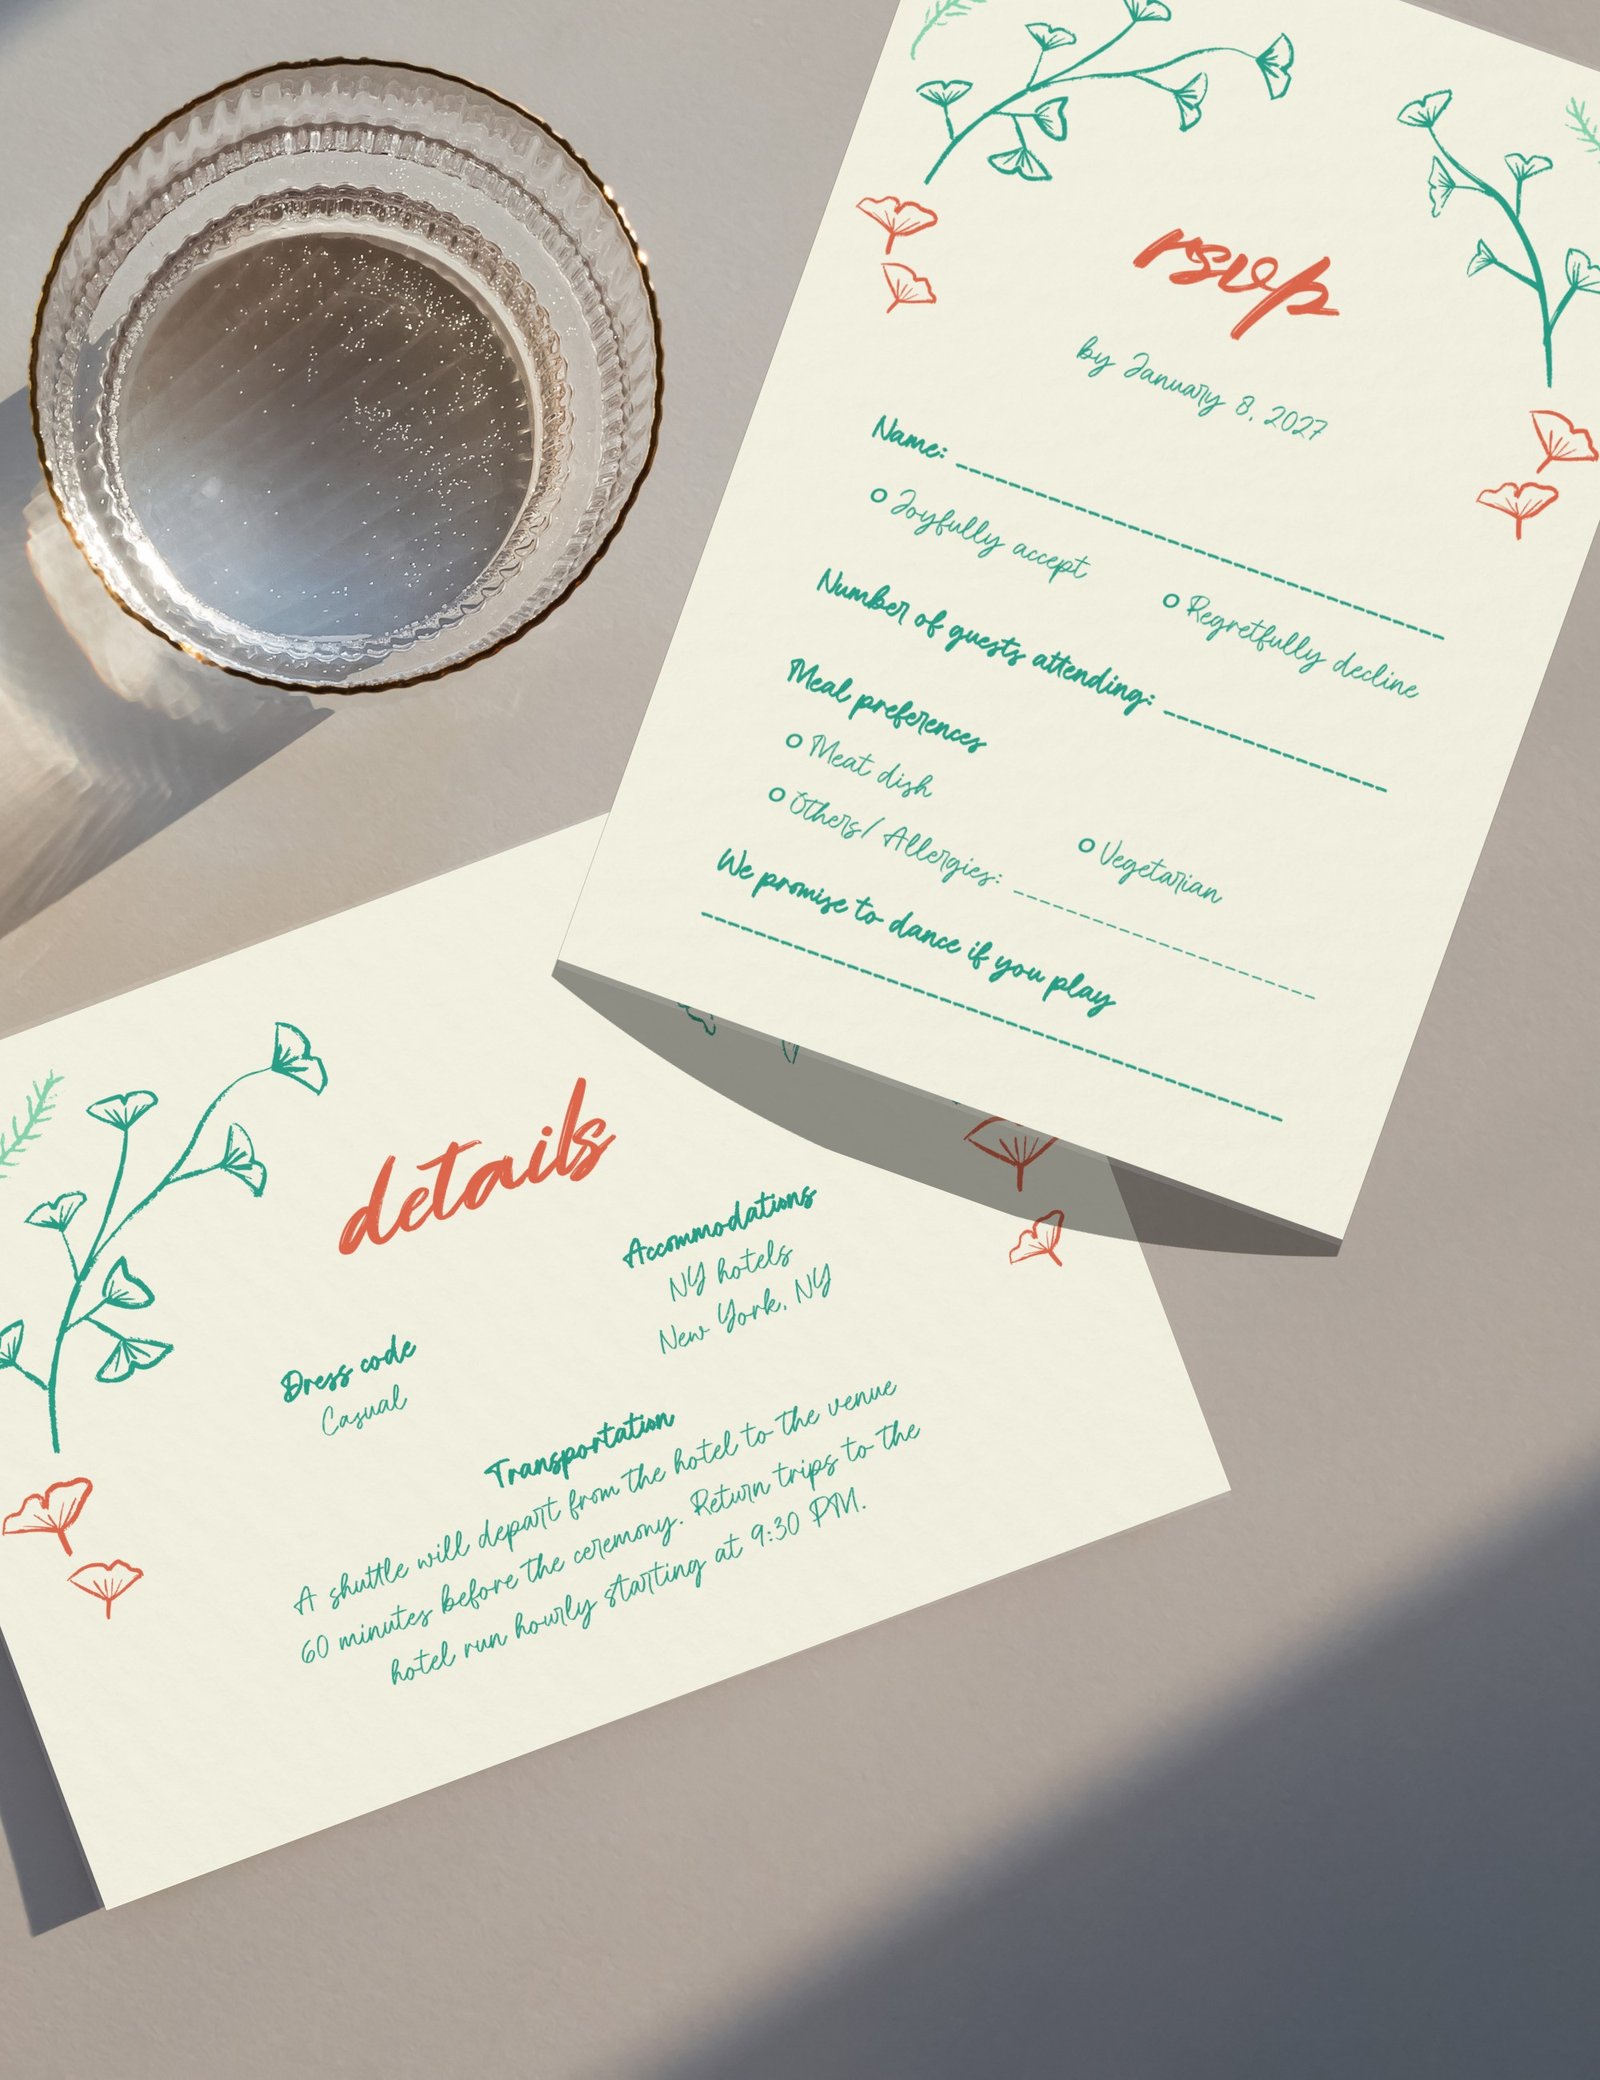 rsvp
by January 8, 2027
Name:
Joyfully accept
Regretfully decline
Number of guests attending:
Meal preferences
Meat dish
Vegetarian
Others/ Allergies:
We promise to dance if you play
details
Dress code
Casual
Accommodations
NY hotels
New York, NY
Transportation
A shuttle will depart from the hotel to the venue
60 minutes before the ceremony. Return trips to the
hotel run hourly starting at 9:30 PM.